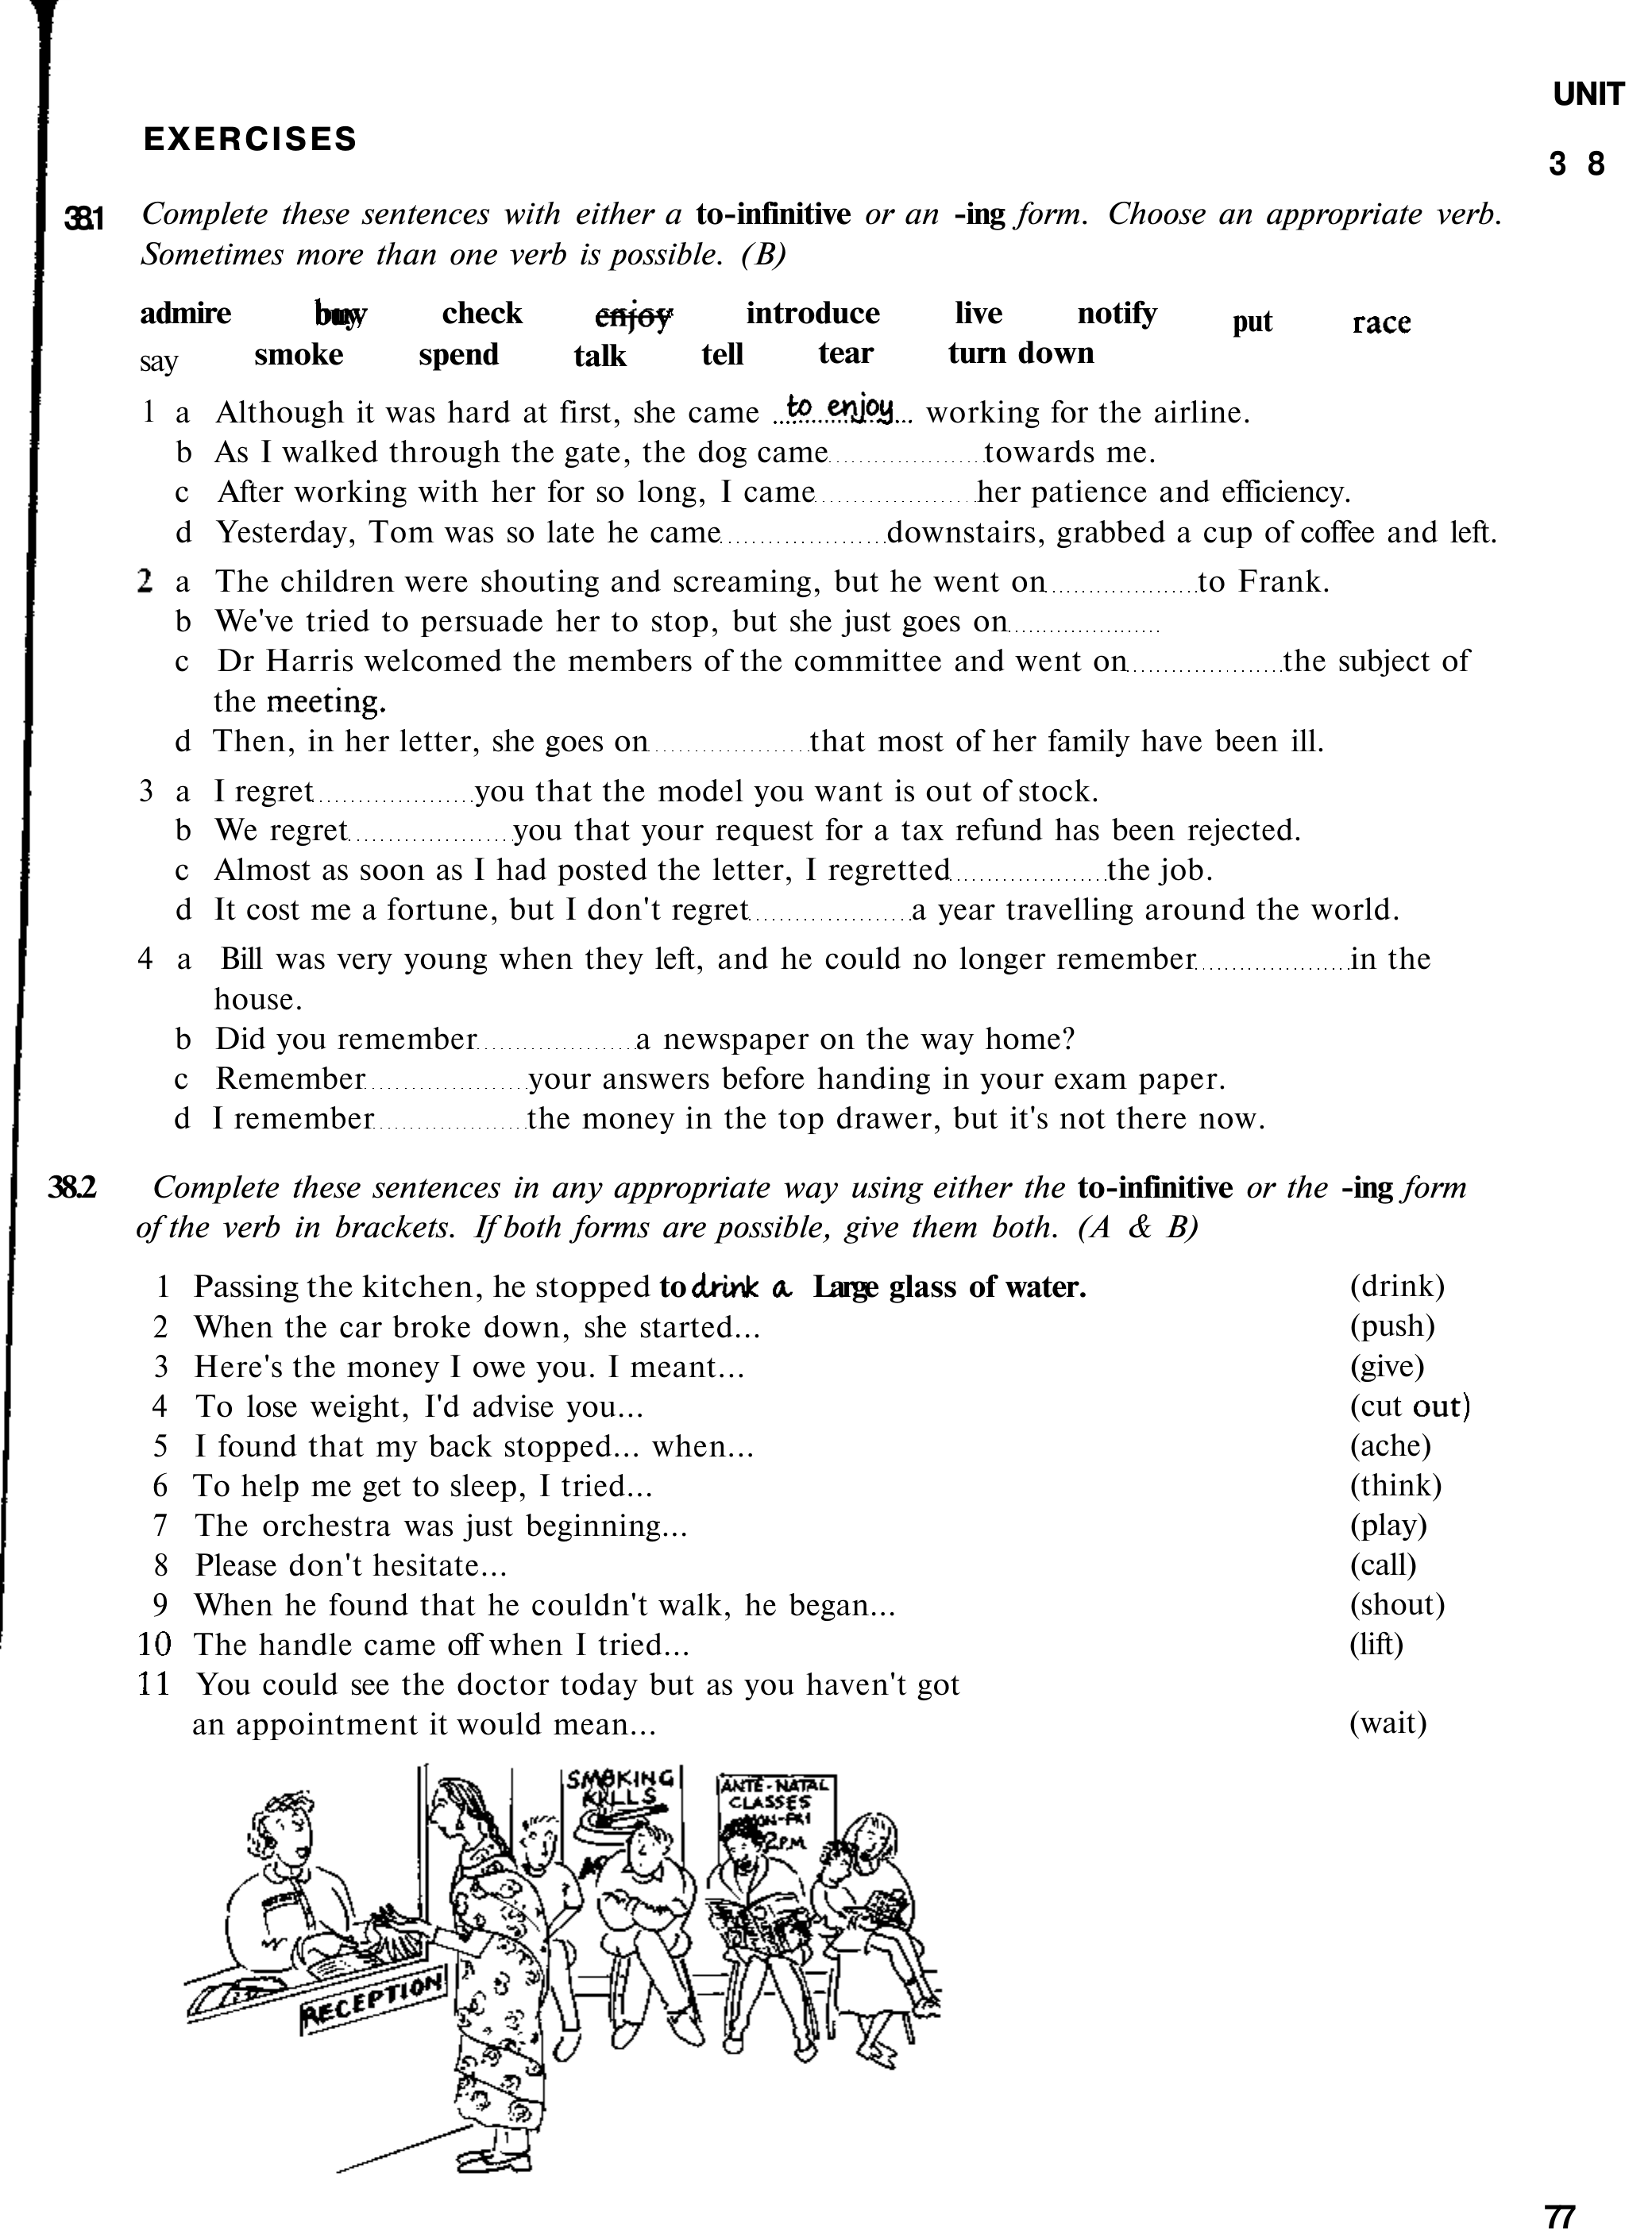 UNIT
EXERCISES
3 8
38.1 Complete these sentences with either a to-infinitive or an -ing form. Choose an appropriate verb.
Sometimes more than one verb is possible. (B)
admire buy check enjoy introduce live notify put race
say smoke spend talk tell tear turn down
1 a Although it was hard at first, she came ...to enjoy... working for the airline.
b As I walked through the gate, the dog came.....................towards me.
c After working with her for so long, I came.....................her patience and efficiency.
d Yesterday, Tom was so late he came.....................downstairs, grabbed a cup of coffee and left.
2 a The children were shouting and screaming, but he went on.....................to Frank.
b We've tried to persuade her to stop, but she just goes on.....................
c Dr Harris welcomed the members of the committee and went on.....................the subject of
the meeting.
d Then, in her letter, she goes on.....................that most of her family have been ill.
3 a I regret.....................you that the model you want is out of stock.
b We regret.....................you that your request for a tax refund has been rejected.
c Almost as soon as I had posted the letter, I regretted.....................the job.
d It cost me a fortune, but I don't regret.....................a year travelling around the world.
4 a Bill was very young when they left, and he could no longer remember.....................in the
house.
b Did you remember.....................a newspaper on the way home?
c Remember.....................your answers before handing in your exam paper.
d I remember.....................the money in the top drawer, but it's not there now.
38.2 Complete these sentences in any appropriate way using either the to-infinitive or the -ing form
of the verb in brackets. If both forms are possible, give them both. (A & B)
1 Passing the kitchen, he stopped to drink a Large glass of water. (drink)
2 When the car broke down, she started... (push)
3 Here's the money I owe you. I meant... (give)
4 To lose weight, I'd advise you... (cut out)
5 I found that my back stopped... when... (ache)
6 To help me get to sleep, I tried... (think)
7 The orchestra was just beginning... (play)
8 Please don't hesitate... (call)
9 When he found that he couldn't walk, he began... (shout)
10 The handle came off when I tried... (lift)
11 You could see the doctor today but as you haven't got
an appointment it would mean... (wait)
SMOKING
KILLS
ANTE-NATAL
CLASSES
MON-FRI
2PM
RECEPTION
77